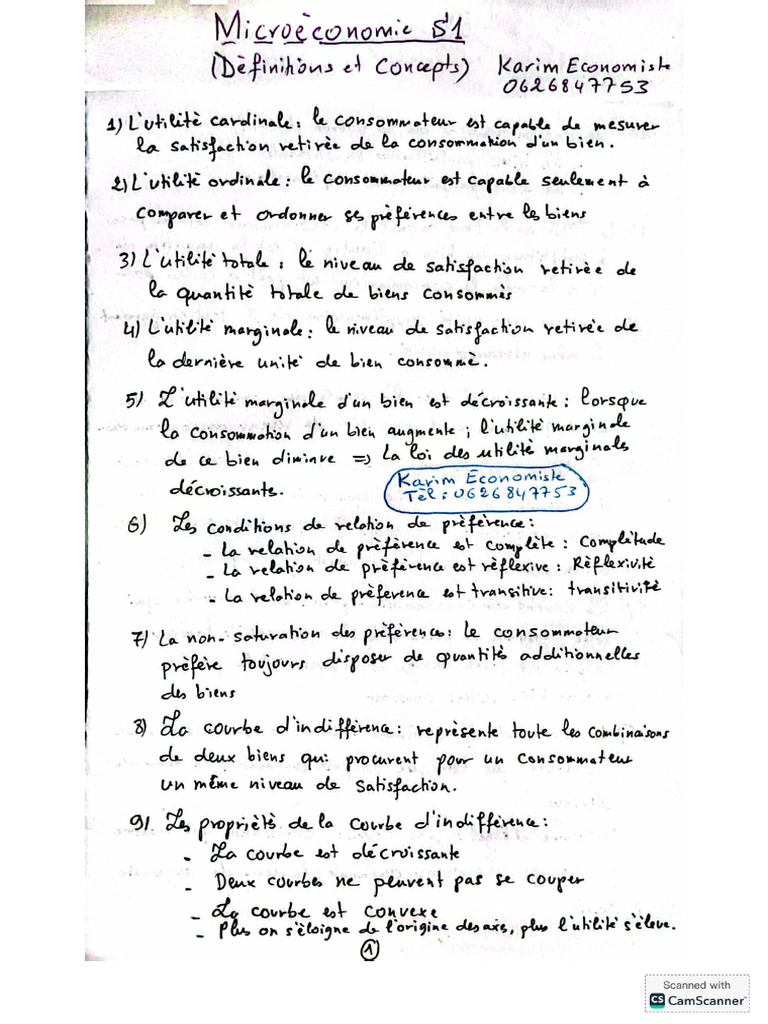 Microéconomie S1
(Définitions et Concepts) Karim Economiste
0626847753
1) L'utilité cardinale : le consommateur est capable de mesurer
la satisfaction retirée de la consommation d'un bien.
2) L'utilité ordinale : le consommateur est capable seulement à
comparer et ordonner ses préférences entre les biens
3) L'utilité totale : le niveau de satisfaction retirée de
la quantité totale de biens consommés
4) L'utilité marginale : le niveau de satisfaction retirée de
la dernière unité de bien consommé.
5) L'utilité marginale d'un bien est décroissante : lorsque
la consommation d'un bien augmente ; l'utilité marginale
de ce bien diminue => la loi des utilité marginals
décroissants.
Karim Economiste
Tél : 0626847753
6) Les conditions de relation de préférence :
- La relation de préférence est complète : Complétude
- La relation de préférence est réflexive : Réflexivité
- La relation de préference est transitive : transitivité
7) La non-saturation des préférences : le consommateur
préfère toujours disposer de quantités additionnelles
des biens
8) La courbe d'indifférence : représente toute les combinaisons
de deux biens qui procurent pour un consommateur
un même niveau de satisfaction.
9). Les propriétés de la courbe d'indifférence :
- La courbe est décroissante
- Deux courbes ne peuvent pas se couper
- La courbe est convexe
- Plus on s'éloigne de l'origine des axes, plus l'utilité s'élève.
1
Scanned with
CS CamScanner